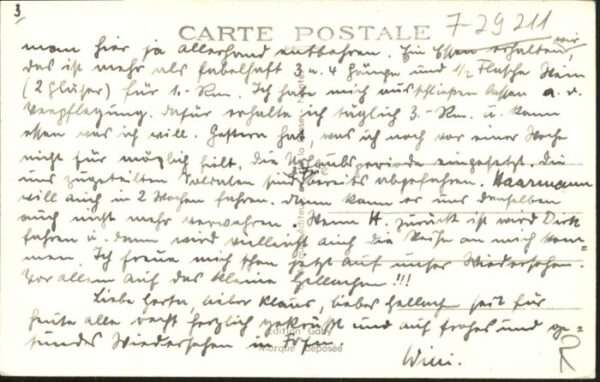 3
CARTE POSTALE
7 29 211
man hier ja allerhand entbehren. Ein Essen erhalten wir,
das ist mehr als fabelhaft 3 u. 4 Gänge und 1/2 Flasche Wein
(2 Gläser) für 1.- Rm. Ich habe mich ausschließen lassen a. d.
Verpflegung. Dafür erhalte ich täglich 3.- Rm. u. kann
essen was ich will. Gestern hat, was ich noch vor einer Woche
nicht für möglich hielt, die Urlaubsperiode eingesetzt. Die
uns zugeteilten Soldaten sind bereits abgefahren. Haarmann
will auch in 2 Wochen fahren. Dann kann er uns denselben
auch nicht mehr verwehren. Wenn H. zurück ist wird Dirk
fahren u. dann wird vielleicht auch die Reihe an mich kom-
men. Ich freue mich schon jetzt auf unser Wiedersehen.
Vor allem auf das kleine Gellachen !!!
Liebe Herta, lieber Klaus, liebes Gellach seit für
heute alle recht herzlich gegrüßt und auf frohes und ge-
sundes Wiedersehen in
Willi.
Edition
Marque Déposée